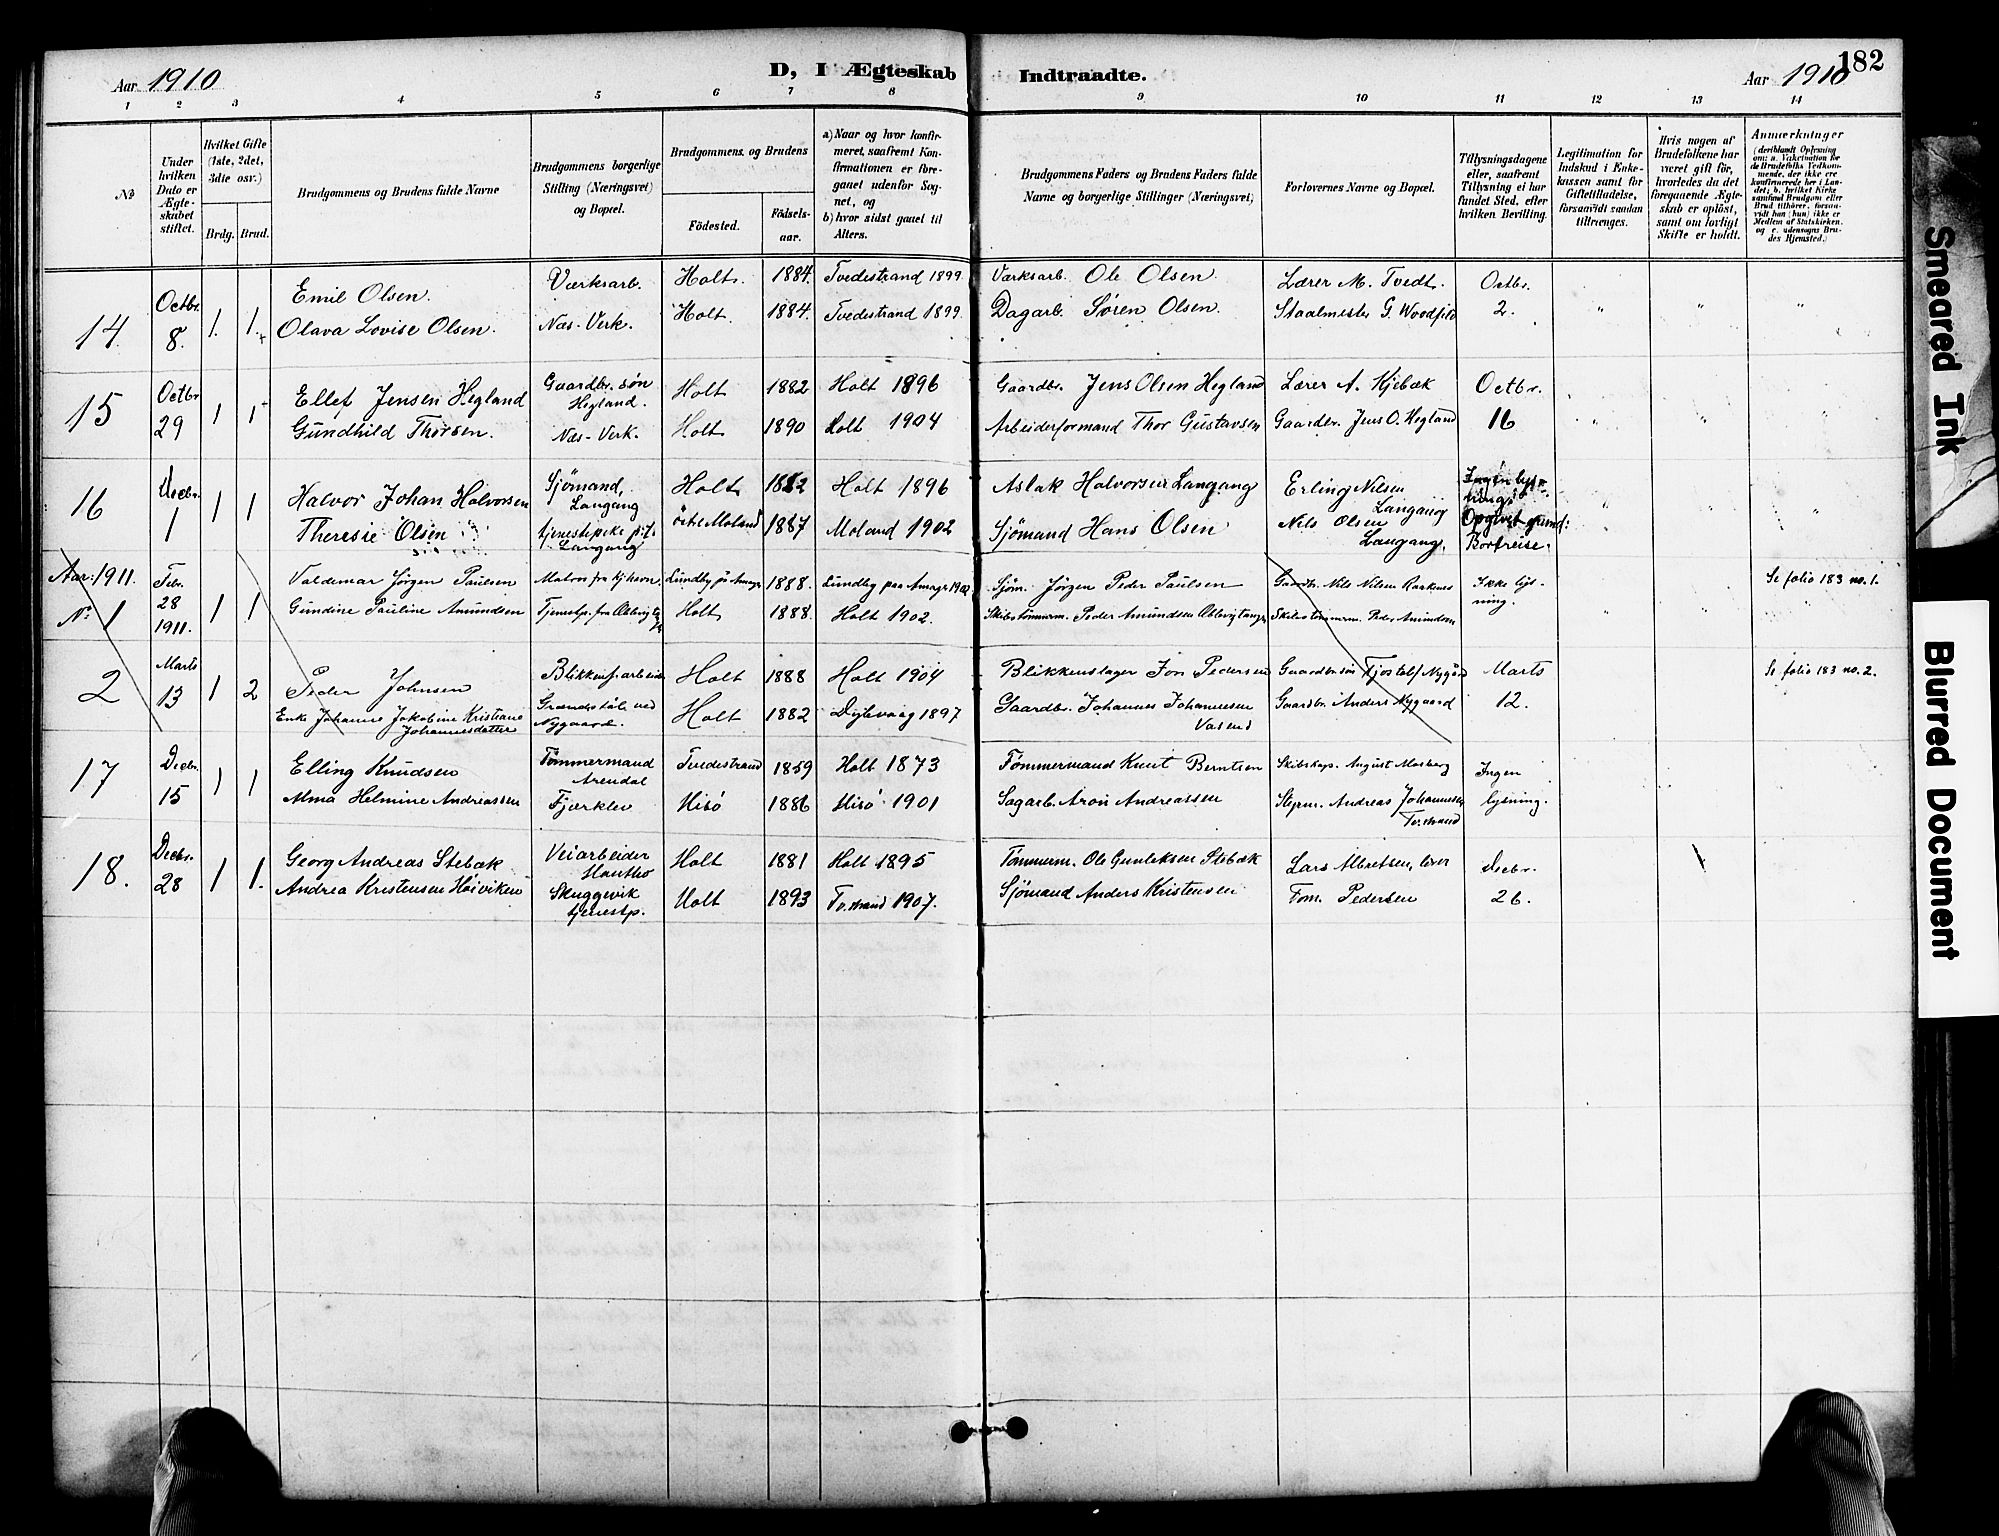 182
Aar 1910
D, I Ægteskab Indtraadte.
Aar 1910
1 2 3 4 5 6 7 8 9 10 11 12 13 14
No
Under hvilken Dato er Ægteskabet stiftet.
Hvilket Gifte (1ste, 2det, 3die osv.)
Brdg. Brud.
Brudgommens og Brudens fulde Navne
Brudgommens borgerlige Stilling (Næringsvei) og Bopæl.
Brudgommens og Brudens
Födested.
Födselsaar.
a) Naar og hvor konfirmeret, saafremt Konfirmationen er foregaaet udenfor Sognet, og
b) hvor sidst gaaet til Alters.
Brudgommens Faders og Brudens Faders fulde Navne og borgerlige Stillinger (Næringsvei)
Forlovernes Navne og Bopæl.
Tillysningsdagene eller, saafremt Tillysning ei har fundet Sted, efter hvilken Bevilling.
Legitimation for Indskud i Enkekassen samt for Giftetilladelse, forsaavidt saadan tiltrænges.
Hvis nogen af Brudefolkene har været gift før, hvorledes da det foregaaende Ægteskab er opløst, samt om lovligt Skifte er holdt.
Anmærkninger (deriblandt Oplysning om: a. Vakcination for de Brudefolks Vedkommende, der ikke ere konfirmerede her i Landet; b. hvilket Kirkesamfund Brudgom eller Brud tilhörer, forsaavidt han (hun) ikke er Medlem af Statskirken. og c. udensogns Brudes Hjemsted.)
14. Octbr. 8. 1. 1. Emil Olsen. Værksarb. Holt. 1884. Tvedestrand 1899. Værksarb. Ole Olsen. Lærer M. Tvedt. Octbr. 2. " " "
Olava Lovise Olsen. Næs-Verk. Holt. 1884. Tvedestrand 1899. Dagarb. Sören Olsen. Staalmester G.
15 Octbr 29 1 1 Ellef Jensen Hegland Gaardbr. sön Hegland. Holt 1882 Holt 1896 Gaardbr. Jens Olsen Hegland Lærer A. Kjebæk Octbr. 16 " " "
Gundhild Thorsen. Næs-Verk. Holt 1890 Holt 1904 Arbeiderformand Thor Gustavsen Gaardbr. Jens O. Hegland
16 Decbr. 1 1 1 Halvor Johan Halvorsen Sjömand, Langang Holt 1882 Holt 1896 Aslak Halvorsen Langang Erling Nilsen Langang Ingen lysning. Opgivet grund: Bortreise. " " "
Theresie Olsen tjenestepike Langang östre Moland 1887 Moland 1902 Sjömand Hans Olsen Nils Olsen Langang.
Aar: 1911. No 1 Febr. 28 1911. 1 1 Valdemar Jörgen Paulsen Matros fra Kjhavn. Lundby på Amager 1888. Lundby paa Amager Sjöm. Jörgen Peder Paulsen Gaardbr. Nils Nilsen Ikke lysning. " " Se folio 183 no. 1.
Gundine Pauline Amundsen Tjenestp. fra Holt 1888. Holt 1902. Skibstömmerm. Peder Amundsen Skibstömmerm. Peder Amundsen
2 Marts 13 1 2 Peder Johnsen Blikkensl.arbeider Holt 1888 Holt 1904 Blikkenslager Jon Pedersen Gaardbr.sön Tjostolf Nygård Marts 12. Se folio 183 no. 2.
Enke Johanne Jakobine Kristiane Johannesdatter ved Nygaard. Holt 1882 Dybvaag 1897 Gaardbr. Johannes Johannesen Gaardbr. Anders Nygaard
17 Decbr. 15 1 1 Elling Knudsen Tömmermand Arendal Tvedestrand 1859 Holt 1873 Tömmermand Knut Berntsen Skibskap. August Ingen lysning.
Alma Helmine Andreassen Fjerklev Hisö 1886 Hisö 1901 Sagarb. Aron Andreassen Styrm. Andreas Johannesen Tv.strand
18. Decbr. 28 1 1. Georg Andreas Stebæk Veiarbeider Holt 1881 Holt 1895 Tömmerm. Ole Gunleksen Stebæk Lars Albretsen, Decbr. 26.
Andrea Kristensen Höiviken Skuggevik tjenestp. Holt 1893 Tv.strand 1907. Sjömand Anders Kristensen Tom. Pedersen
Smeared Ink
Blurred Document